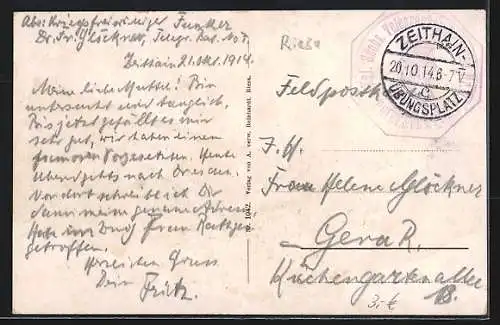 Abs: Kriegsfreiwilliger Funker
Dr. Fr. Glöckner, Telegr. Bat. No 7,
Zeithain 21. Okt. 1914.
Meine liebe Mutter! Bin
untersucht und tauglich.
Bis jetzt gefällt es mir
sehr gut, wir haben einen
famosen Vorgesetzten. Heute
Abend gehts nach Dresden.
Von dort schreibe ich Dir
dann meine genaue Adresse.
Habe im Zug Frau
getroffen.
Herzlichen Gruss
Dein Fritz.
Riesa
ZEITHAIN-
20.10.14.6-7V
c
ÜBUNGSPLATZ
Feldpostk
Frau Helene Glöckner
Gera R.
Küchengartenallee
18.
3.-€
Nr. 1042. Verlag von A. verw. Reinhardt, Riesa.